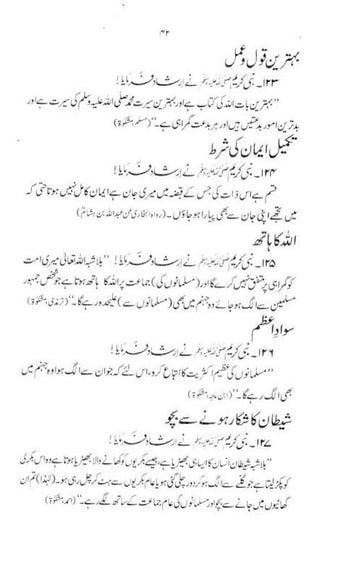 ۴۲
بہترین قول و عمل
۱۲۳۔ نبی کریم ﷺ نے ارشاد فرمایا!
"بہترین بات اللہ کی کتاب ہے اور بہترین سیرت محمد صلی اللہ علیہ وسلم کی سیرت ہے اور
بدترین امور بدعتیں ہیں اور ہر بدعت گمراہی ہے۔" (مسلم، مشکوٰۃ)
تکمیل ایمان کی شرط
۱۲۴۔ نبی کریم ﷺ نے ارشاد فرمایا!
قسم ہے اس ذات کی جس کے قبضہ میں میری جان ہے ایمان کامل نہیں ہوتا حتی کہ
میں تجھے اپنی جان سے بھی پیارا ہو جاؤں۔ (رواہ البخاری عن عبداللہ بن ہشام)
اللہ کا ہاتھ
۱۲۵۔ نبی کریم ﷺ نے ارشاد فرمایا! "بلاشبہ اللہ تعالیٰ میری امت
کو گمراہی پر متفق نہیں کرے گا اور (مسلمانوں کی) جماعت پر اللہ کا ہاتھ ہوتا ہے جو شخص جمہور
مسلمین سے الگ ہو جائے وہ جہنم میں بھی (مسلمانوں سے) علیحدہ رہے گا۔" (ترمذی، مشکوٰۃ)
سواد اعظم
۱۲۶۔ نبی کریم ﷺ نے ارشاد فرمایا!
"مسلمانوں کی عظیم اکثریت کا اتباع کرو، اس لئے کہ جو ان سے الگ ہوا وہ جہنم میں
بھی الگ رہے گا۔" (ابن ماجہ، مشکوٰۃ)
شیطان کا شکار ہونے سے بچو
۱۲۷۔ نبی کریم ﷺ نے ارشاد فرمایا!
"بلاشبہ شیطان انسان کا ایسا ہی بھیڑیا ہے، جیسے بکریوں کو کھانے والا بھیڑیا ہوتا ہے وہ اس بکری
کو پکڑ لیتا ہے جو گلے سے الگ ہو کر دور چلی گئی ہو یا عام بکریوں سے ہٹ کر چل رہی ہو۔ (لہٰذا) تم ان
گھاٹیوں میں جانے سے بچو اور مسلمانوں کی عام جماعت کے ساتھ لگے رہے۔" (احمد، مشکوٰۃ)